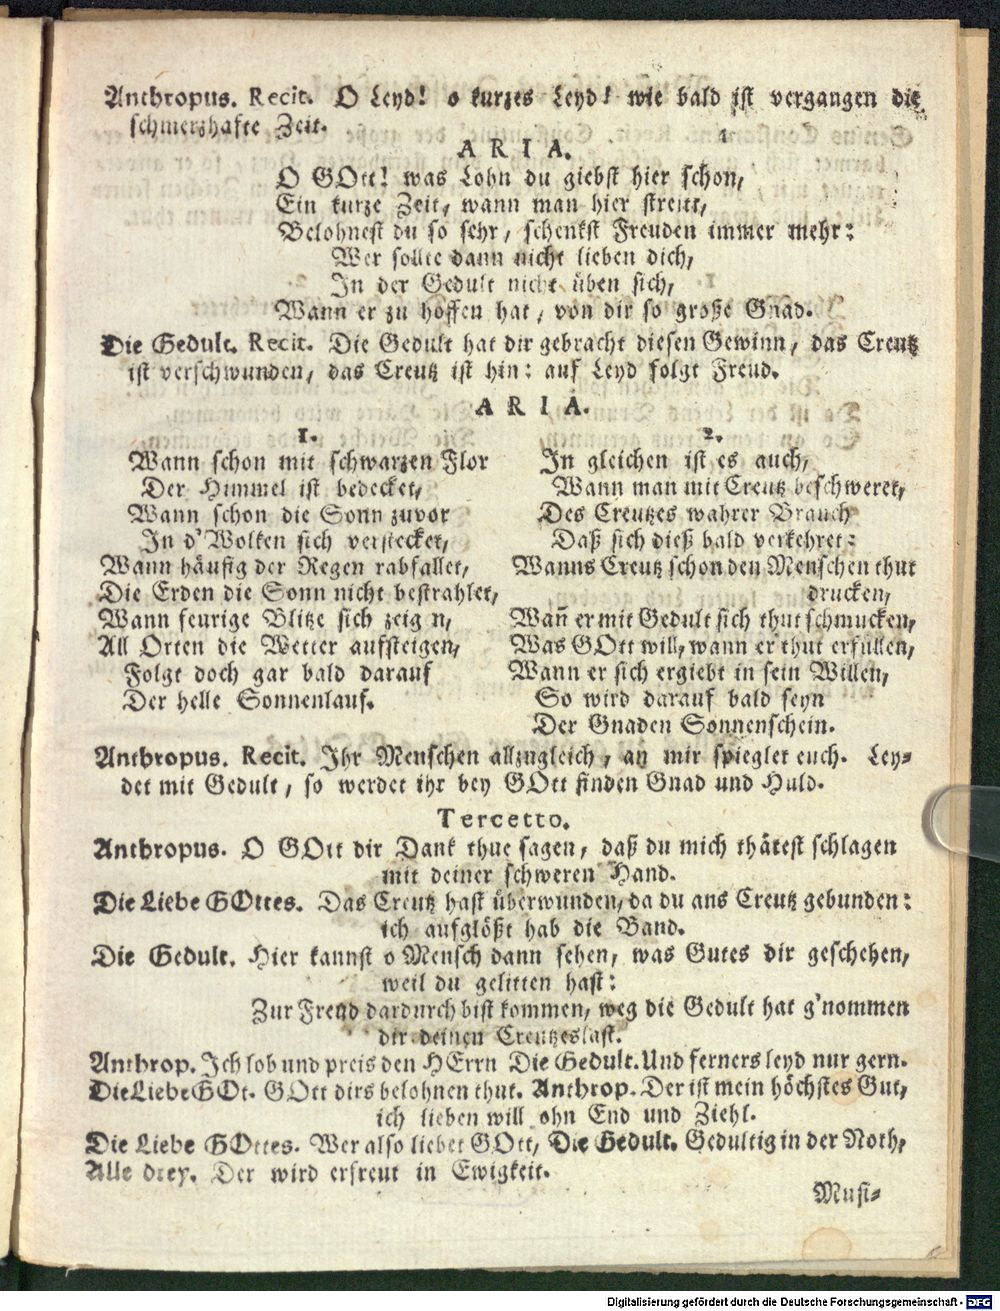 Anthropus. Recit. O Leyd! o kurzes Leyd! wie bald ist vergangen die
schmerzhafte Zeit.
ARIA.
O GOtt! was Lohn du giebst hier schon,
Ein kurze Zeit, wann man hier streitt,
Belohnest du so sehr, schenkst Freuden immer mehr:
Wer sollte dann nicht lieben dich,
In der Gedult nicht üben sich,
Wann er zu hoffen hat, von dir so große Gnad.
Die Gedult. Recit. Die Gedult hat dir gebracht diesen Gewinn, das Creutz
ist verschwunden, das Creutz ist hin: auf Leyd folgt Freud.
ARIA.
1.
Wann schon mit schwarzen Flor
Der Himmel ist bedecket,
Wann schon die Sonn zuvor
In d'Wolken sich verstecket,
Wann häufig der Regen rabfallet,
Die Erden die Sonn nicht bestrahlet,
Wann feurige Blitze sich zeig n,
All Orten die Wetter aufsteigen,
Folgt doch gar bald darauf
Der helle Sonnenlauf.
2.
In gleichen ist es auch,
Wann man mit Creutz beschweret,
Des Creutzes wahrer Brauch
Daß sich dieß bald verkehret:
Wanns Creutz schon den Menschen thut
drucken,
Wañ er mit Gedult sich thut schmucken,
Was GOtt will, wann er thut erfüllen,
Wann er sich ergiebt in sein Willen,
So wird darauf bald seyn
Der Gnaden Sonnenschein.
Anthropus. Recit. Ihr Menschen allzugleich, an mir spieglet euch. Ley-
det mit Gedult, so werdet ihr bey GOtt finden Gnad und Huld.
Tercetto.
Anthropus. O GOtt dir Dank thue sagen, daß du mich thätest schlagen
mit deiner schweren Hand.
Die Liebe GOttes. Das Creutz hast überwunden, da du ans Creutz gebunden:
ich aufglößt hab die Band.
Die Gedult. Hier kannst o Mensch dann sehen, was Gutes dir geschehen,
weil du gelitten hast:
Zur Freud dardurch bist kommen, weg die Gedult hat g'nommen
dir deinen Creutzeslast.
Anthrop. Ich lob und preis den HErrn Die Gedult. Und ferners leyd nur gern.
Die Liebe GOt. GOtt dirs belohnen thut. Anthrop. Der ist mein höchstes Gut,
ich lieben will ohn End und Ziehl.
Die Liebe GOttes. Wer also liebet GOtt, Die Gedult. Gedultig in der Noth,
Alle drey. Der wird erfreut in Ewigkeit.
Musi-
Digitalisierung gefördert durch die Deutsche Forschungsgemeinschaft - DFG